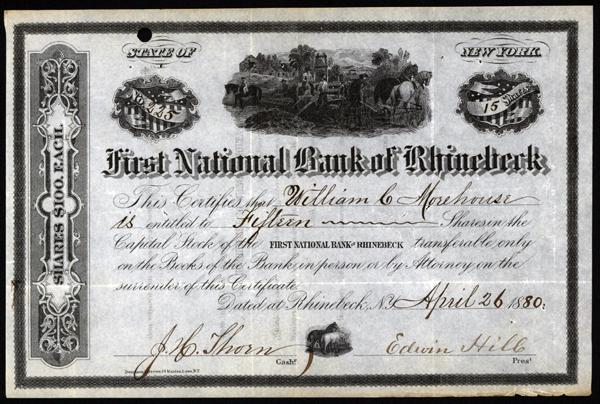 STATE OF
NEW YORK.
No. 225
15 Shares
SHARES $100. EACH.
First National Bank of Rhinebeck
This Certifies that William C Morehouse
is entitled to Fifteen Shares in the
Capital Stock of the FIRST NATIONAL BANK OF RHINEBECK transferable only
on the Books of the Bank, in person or by Attorney on the
surrender of this Certificate.
Dated at Rhinebeck, N.Y. April 26 1880.
J. H. Thorn
Edwin Hill
Cashr.
Prest.